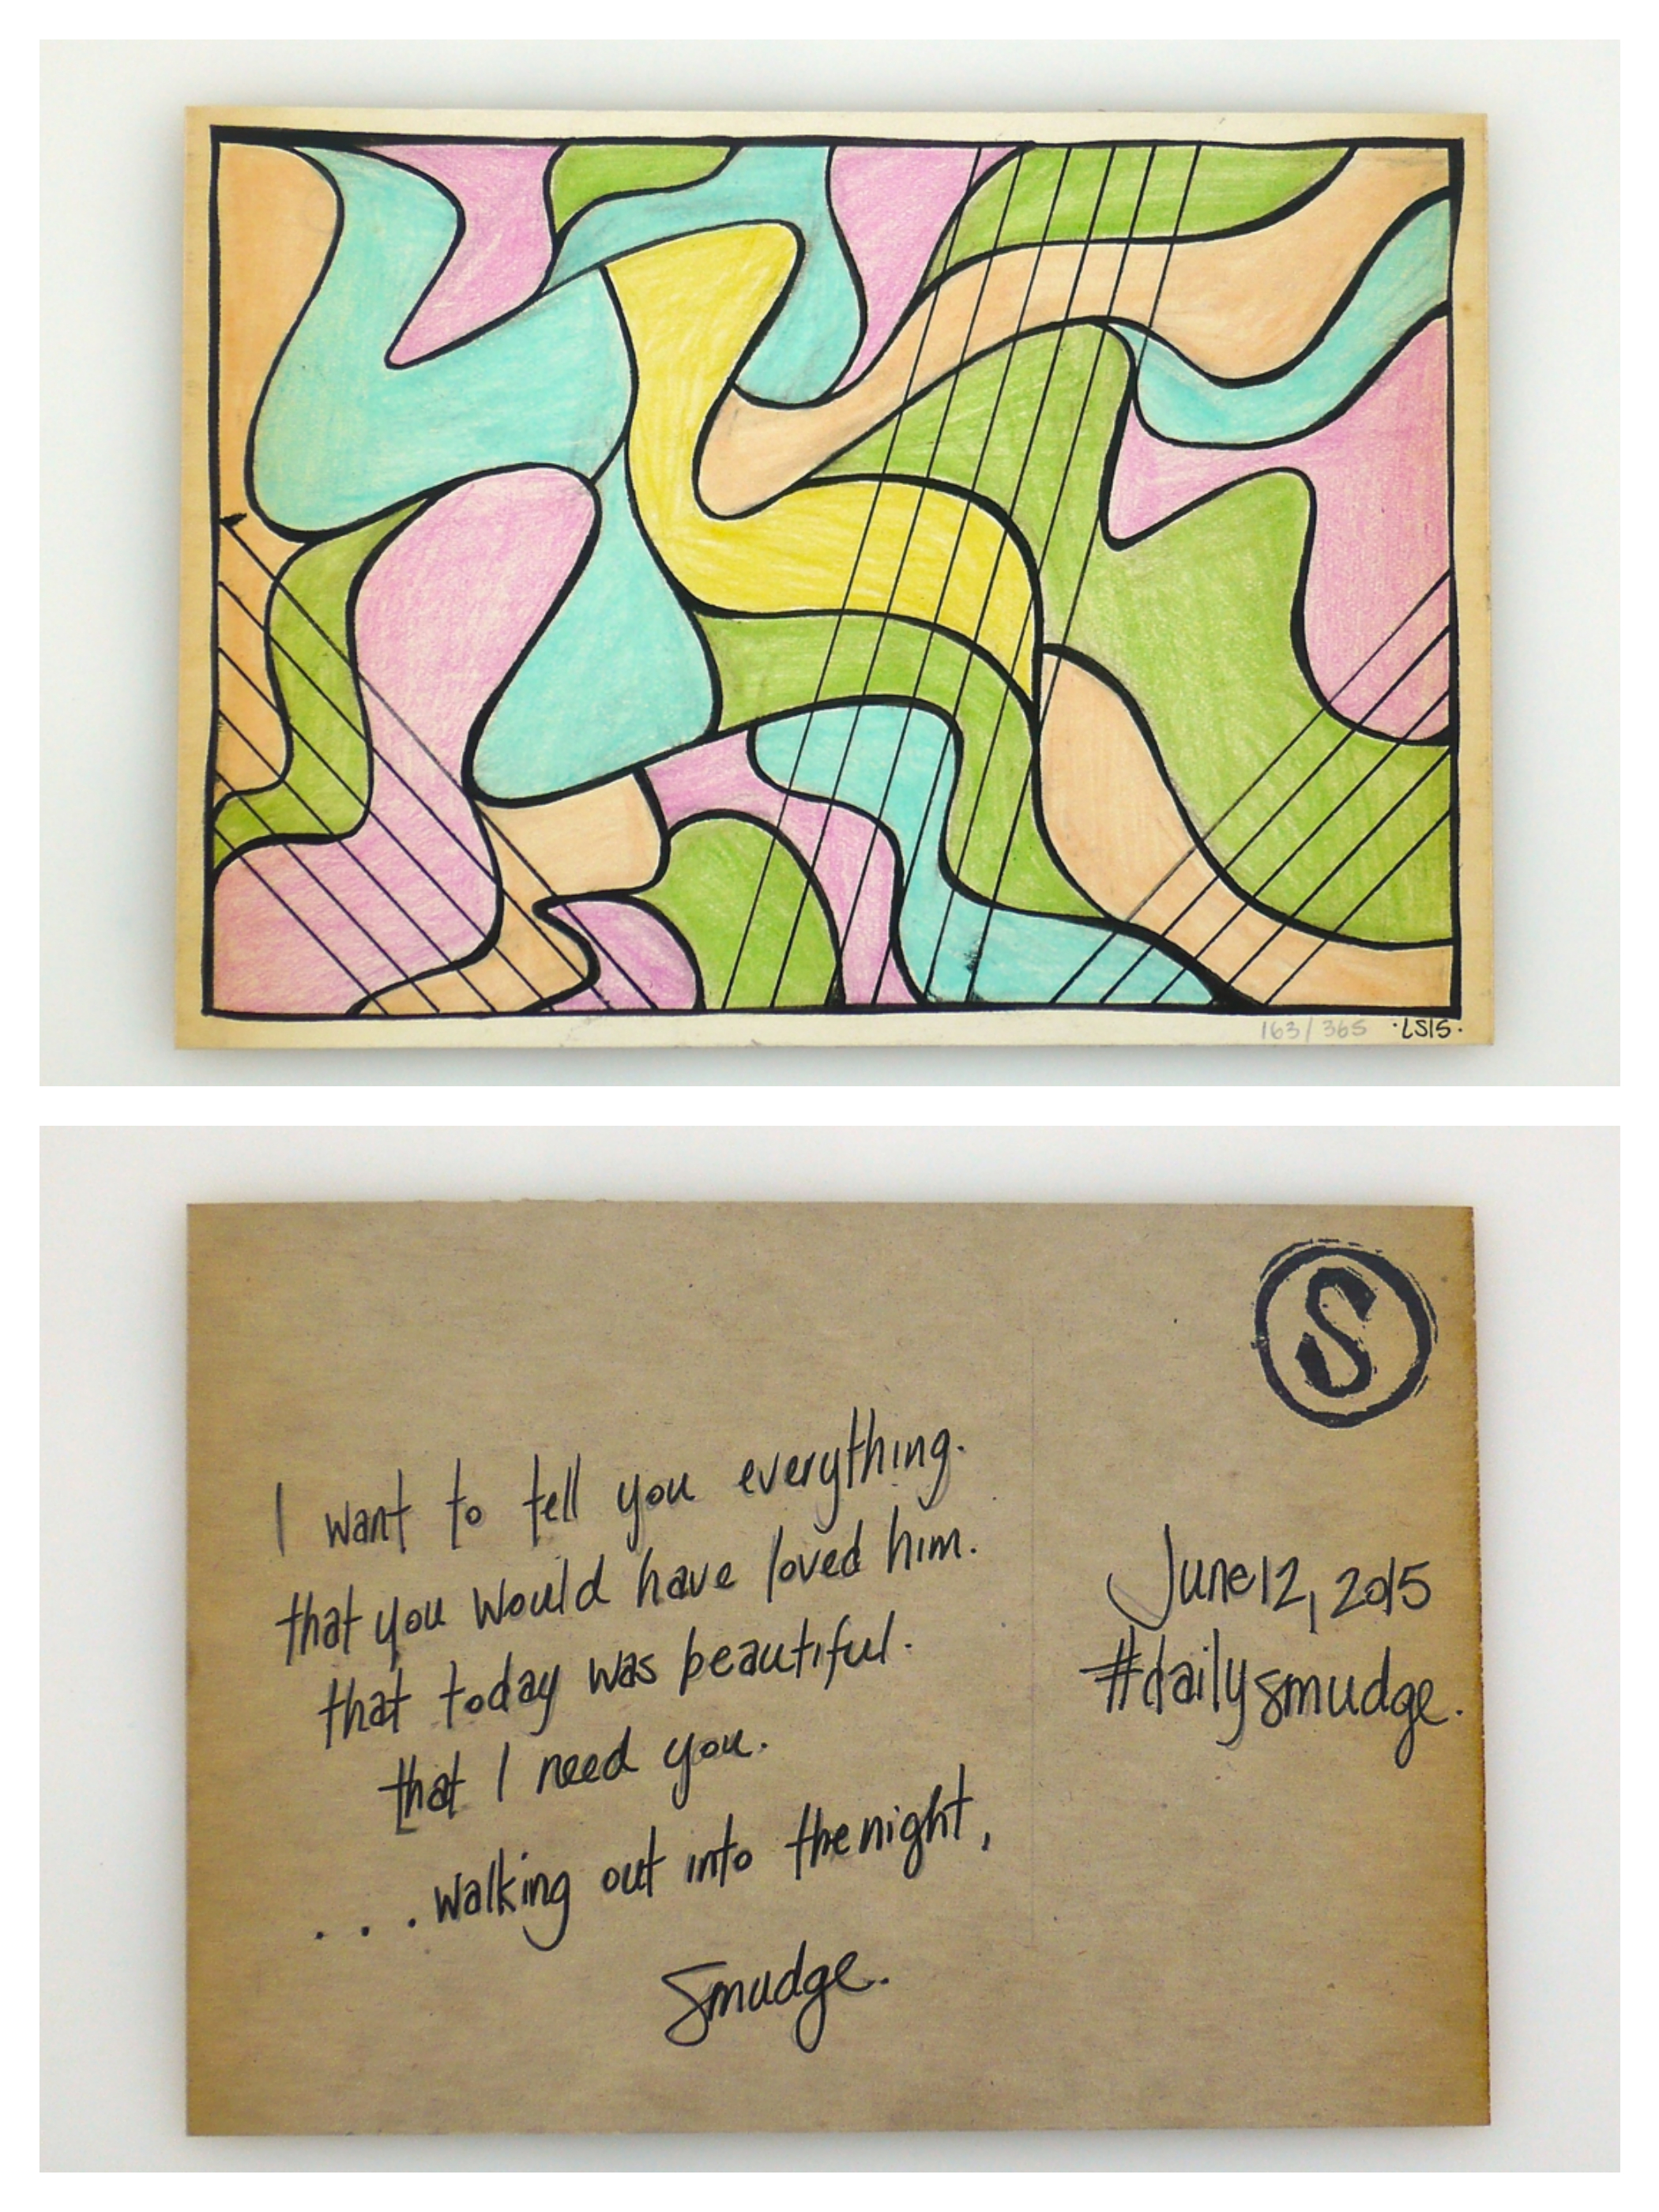 163/365 ·LS15·
S
I want to tell you everything.
that you would have loved him.
that today was beautiful.
that I need you.
...walking out into the night,
Smudge.
June 12, 2015
#dailysmudge.